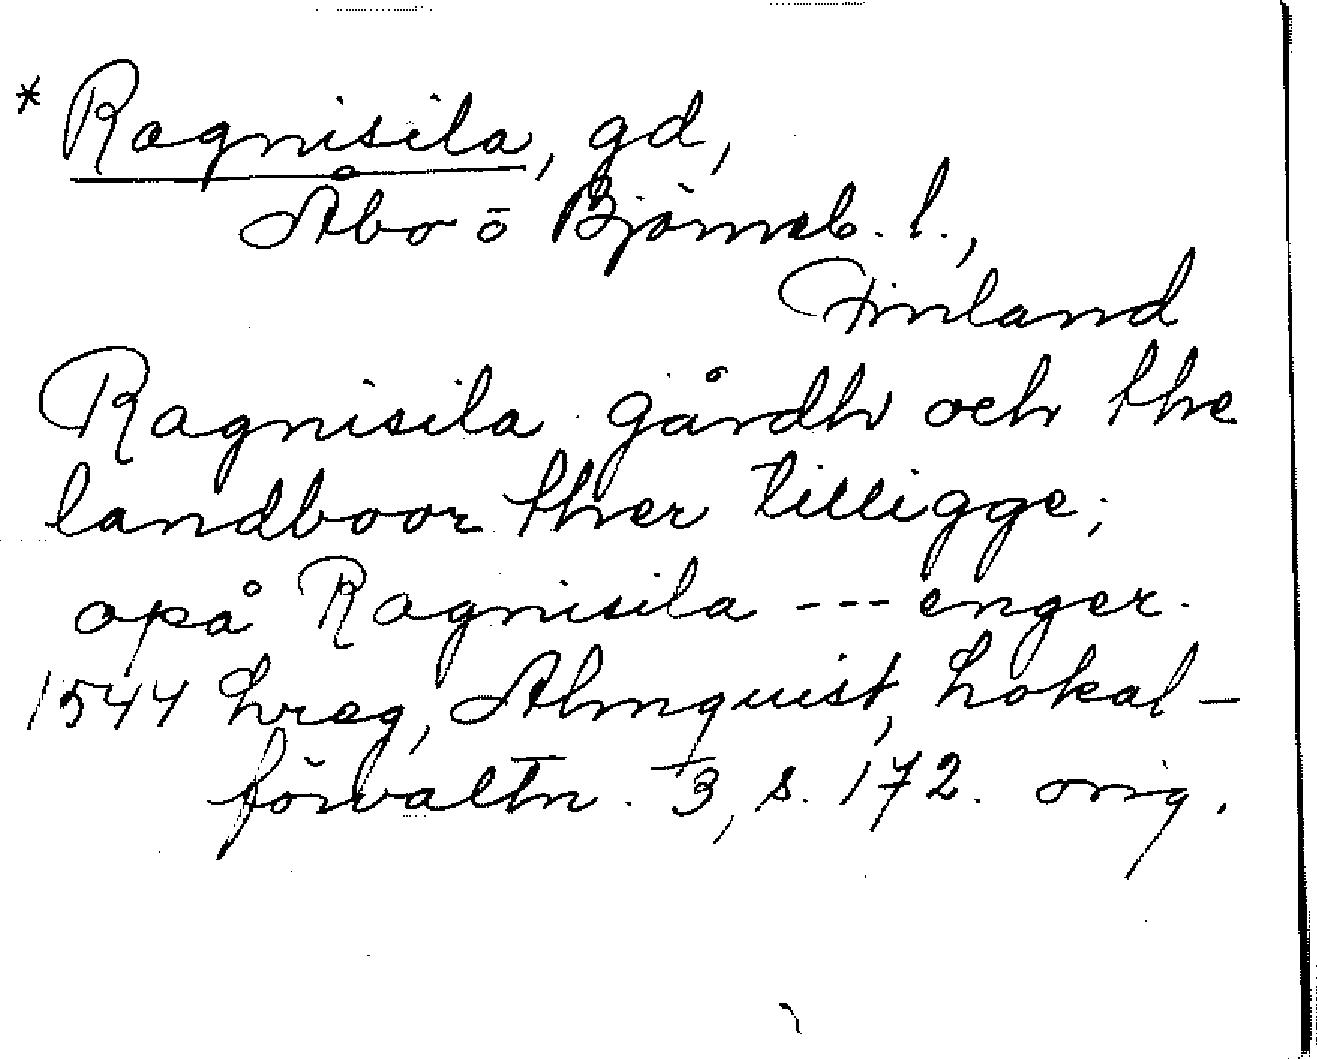 * Ragnisila, gd,
Åbo o Björneb. l.,
Finland
Ragnisila gårdh och the
landboor ther tilligge;
opå Ragnisila --- enger.
1544 hreg, Almquist, Lokal-
förvaltn. 3, s. 172. orig.